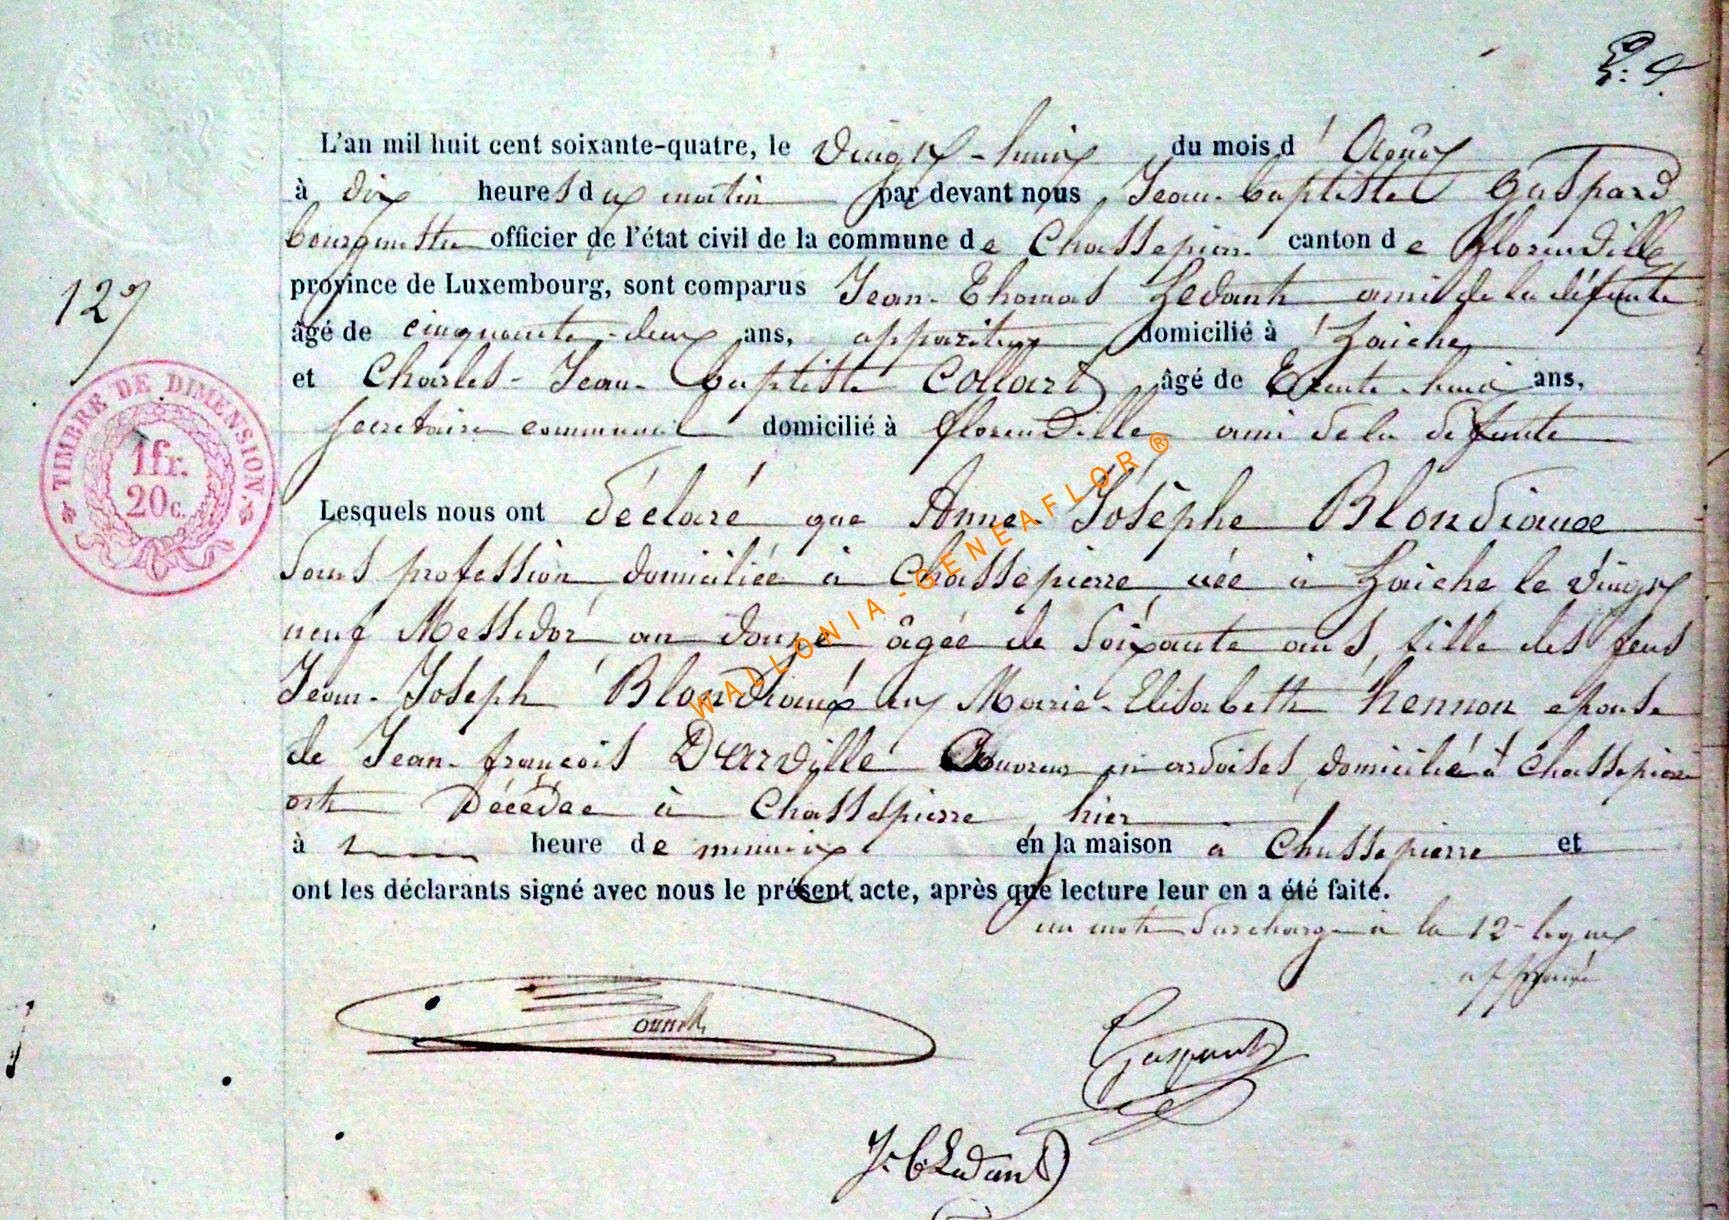 L'an mil huit cent soixante-quatre, le vingt-huit du mois d'Août
à dix heures du matin par devant nous Jean-Baptiste Gaspard
bourgmestre officier de l'état civil de la commune de Chassepierre canton de florenville
province de Luxembourg, sont comparus Jean-Thomas Ledant ami de la défunte
âgé de cinquante-deux ans, appariteur domicilié à Laiche
et Charles-Jean-Baptiste Collard âgé de trente-huit ans,
secretaire communal domicilié à florenville ami de la défunte
Lesquels nous ont déclaré que Anne-Josèphe Blondiaux
sans profession domiciliée à Chassepierre née à Laiche le vingt
neuf Messidor an douze âgée de soixante ans, fille des feus
Jean-Joseph Blondiaux et Marie-Elisabeth hennon epouse
de Jean-françois Darville Couvreur en ardoises domicilié à Chassepierre
est Décédée à Chassepierre hier
à heure de minuit en la maison à Chassepierre et
ont les déclarants signé avec nous le présent acte, après que lecture leur en a été faite.
un mot surchargé à la 12e ligne
approuvé
Gaspard
J. T. Ledant
127
TIMBRE DE DIMENSION.
1 fr.
20 c.
WALLONIA-GENEAFLOR®